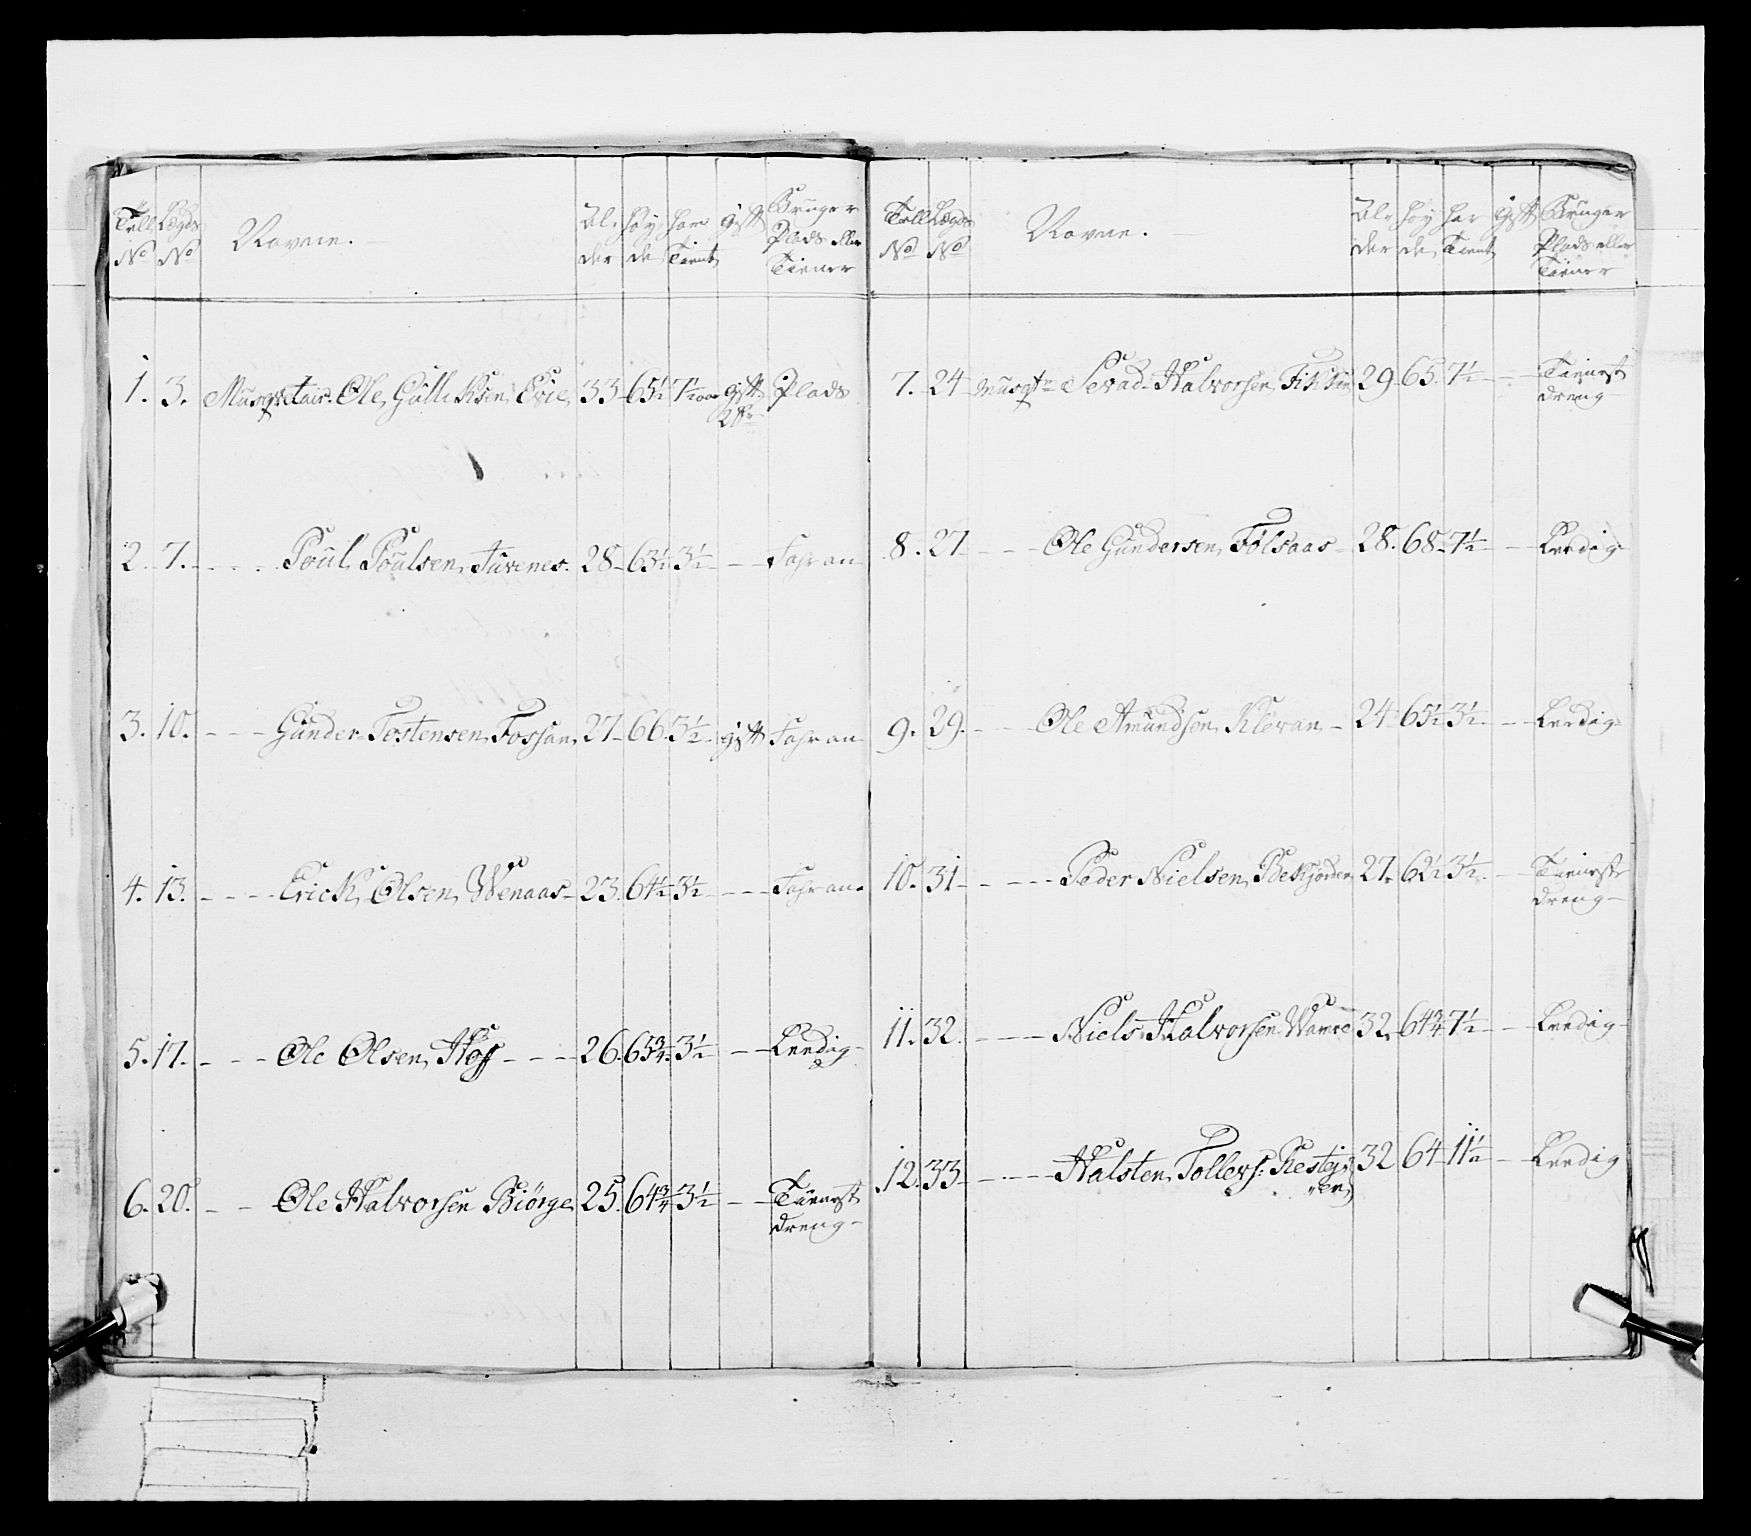 Tall No Lægds No Navne. Al-der Høy-de har Tient gift Bruger Plads eller Tiener
1. 3. Musqvetair. Ole Gulliksen Evie 33 65½ 7½ aar gift Plads
2. 7. - - - - Poul Poulsen Tuvenes. 28 - 63½ 3½ - - Fahr an
3. 10. - - - Gunder Tostensen Fossan 27 - 66 3½ gift Fahr an
4. 13. - - - - Erick Olsen Wenaas - 23. 64½ 3½ - - - Fahr an.
5. 17. - - - Ole Olsen Høf - - - 26. 65¾. 3½ - - Leedig -
6. 20. - - Ole Halvorsen Biörge 25. 64¾ 3½ - - Tienest
dreng -
Tall No Lægds No Navne. Al-der Høy-de har Tient gift Bruger Plads eller Tiener
7. 24 Musqtr Sevad Halvorsen 29 65. 7½ - - Tienest
dreng -
8. 27 - - - Ole Gundersen Folsaas - 28. 68 - 7½ - - Leedig
9. 29. - - - Ole Amundsen Klevan - 24 65½ 3½ - - Leedig
10. 31 - - - - - Peder Nielsen 27. 62½ 3½. - - Tieneste
dreng -
11. 32. - - - - Niels Halvorsen 32. 64¾ 7½ - - Leedig -
12. 33 - - - - - Halsten Tollevs: 32 64 11½ - Leedig